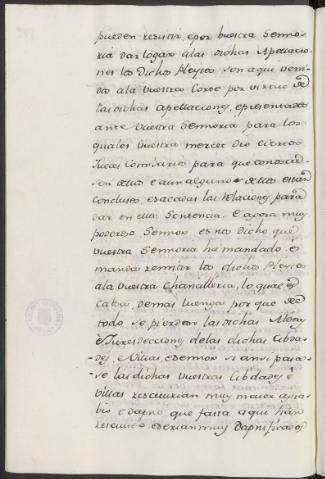 pueden rescivir, e por vuestra Senno-
ria dar logar a las dichas Apellacio-
nes los Dichos Pleytos son aqui veni-
dos a la vuestra Corte por virtud de
las dichas apellaciones, e presentados
ante vuestra Sennoria para los
quales vuestra merced dio ciertos
Jueces Comisarios para que conoscie-
sen dellos e aun algunos dellos estan
conclusos, e sacadas las Relaciones para
dar en ellos Sentencia. e agora muy
poderoso Sennor es nos dicho que
vuestra Sennoria ha mandado é
manda remitir los dichos Pleytos
a la vuestra Chancilleria, lo qual
demas luenga por que
todo se pierden las dichas
è Jurisdecciones de las dichas Cibda-
des, e Villas, e Sennor si ansi pasa-
se las dichas vuestras Cibdades é
villas rescivirian muy mayor agra-
bio e dapno que fasta aqui han
rescivido e serian muy Dapnificados